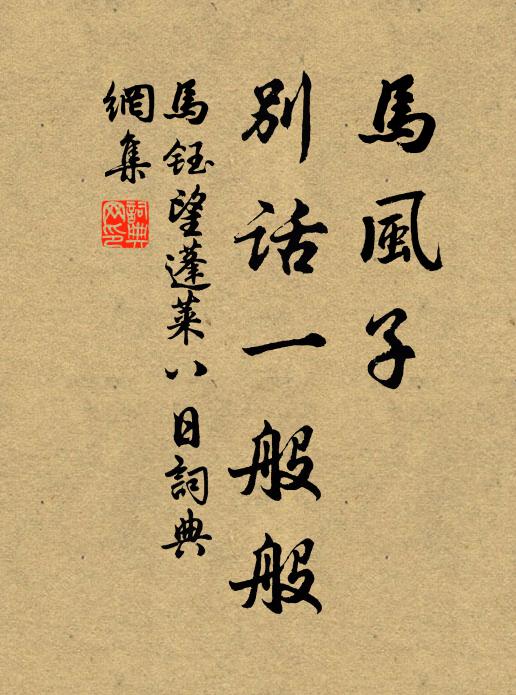 馬風子
別話一般般
馬鈺望蓬萊八日詞典
網集
詞典
网印